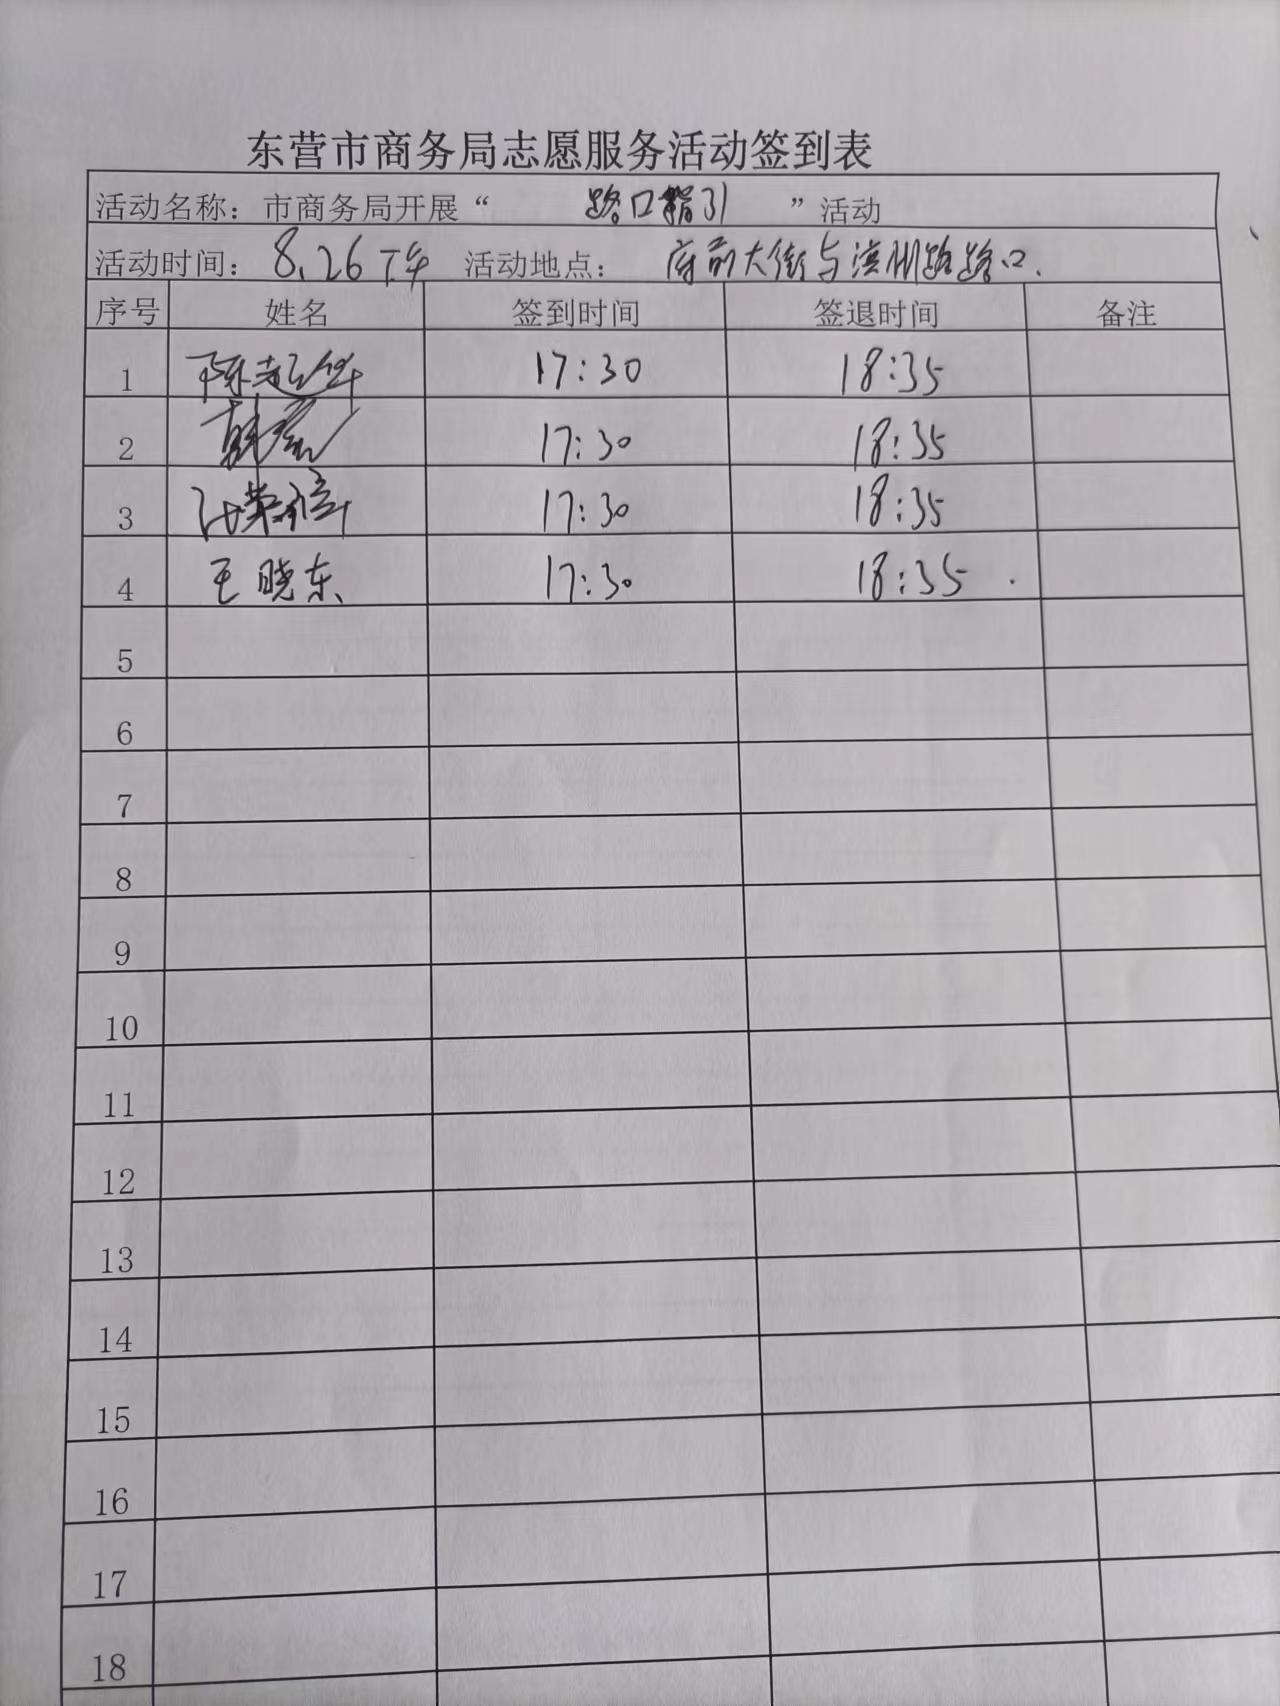 东营市商务局志愿服务活动签到表
活动名称：市商务局开展“ 路口指引 ”活动
活动时间：8.26下午 活动地点：府前大街与滨州路路口.
序号 姓名 签到时间 签退时间 备注
1 17:30 18:35
2 17:30 18:35
3 17:30 18:35
4 王晓东 17:30 18:35
5
6
7
8
9
10
11
12
13
14
15
16
17
18